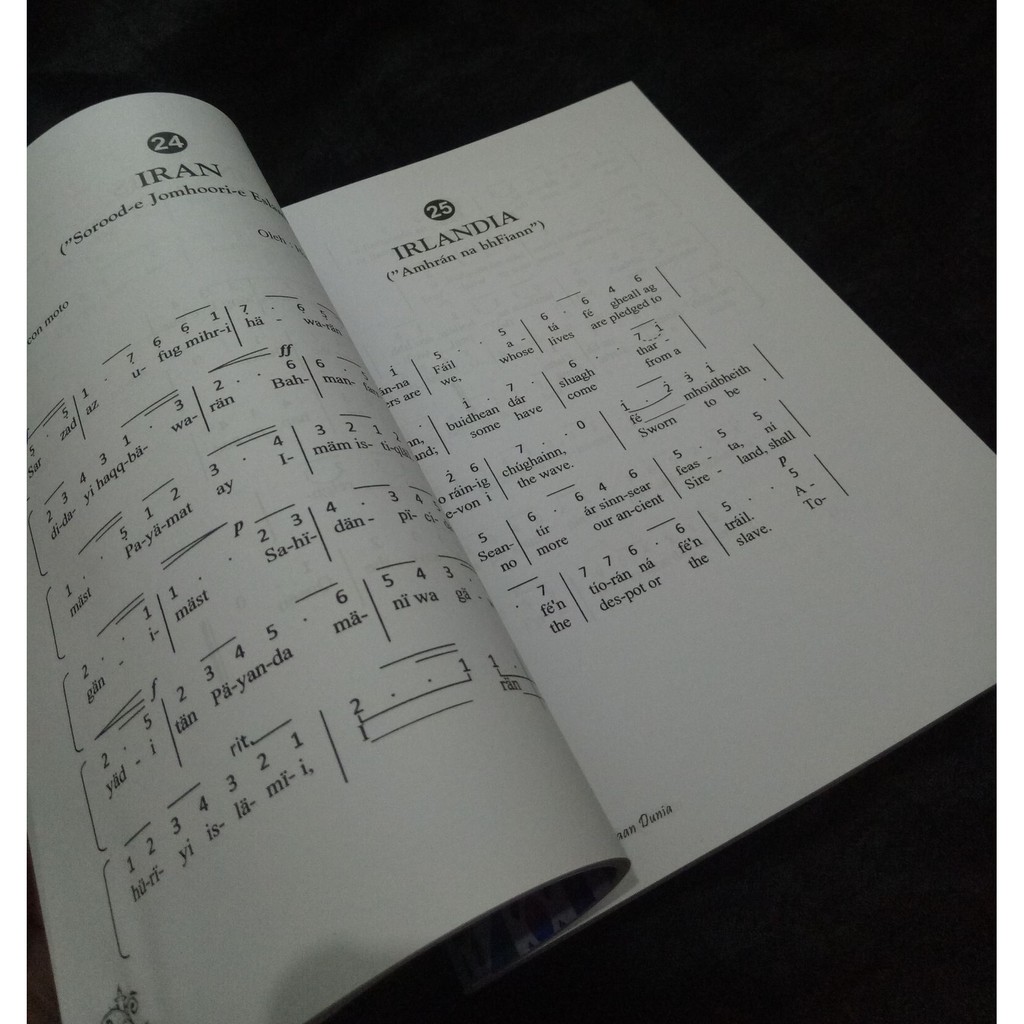 24
IRAN
("Sorood-e Jomhoori-e
Oleh
con moto
7 6 6 1 | 7 · 6 5
u- fug mihr-i hä - wa-rän
ff
5 · 5 | 1 ·
Sar zad az
2 3 4 3 1 · 3 | 2 · · 6 | 6 ·
di-da- yi haqq-bä- wa- rän Bah- man-
1 · · 5 1 2 3 · · 4 | 3 2 1 2
mäst Pa-yä-mat ay I- mäm is- ti-
p
2 · · 1 | 1 · · 2 3 | 4 · 3
gän - i- mäst Sa-hï- dän- pï-
f
2 · 5 | 2 3 4 5 · 6 | 5 4 3 ·
yäd - i tän Pä-yan-da mä- nï wa gä
rit.
1 2 3 4 3 2 1 | 2 · · 1 | 1 ·
hü-rï- yi is- lä- mï- i, I rän
25
IRLANDIA
("Amhrán na bhFiann")
5 · · 5 | 6 · · 6 4 6
Fáil a - tá fé gheall ag
ers are we, whose lives are pledged to
i · 7 · | 6 · · 7 i
buidhean dár sluagh thar -
some have come from a
2 6 | 7 · · 0 | i · 2 3 i
o ráin-ig chúghainn, fé mhoidbheith
e-von i the wave. Sworn to be
5 | 6 · · 6 4 6 | 5 · · 5 · 5
Sean- tír ár sinn-sear feas - ta, ní
no more our an-cient Sire - land, shall
p
· 7 | 7 7 6 · · 6 | 5 · · 5
fé'n tío-rán ná fé'n tráil. A -
the des-pot or the slave. To-
Dunia